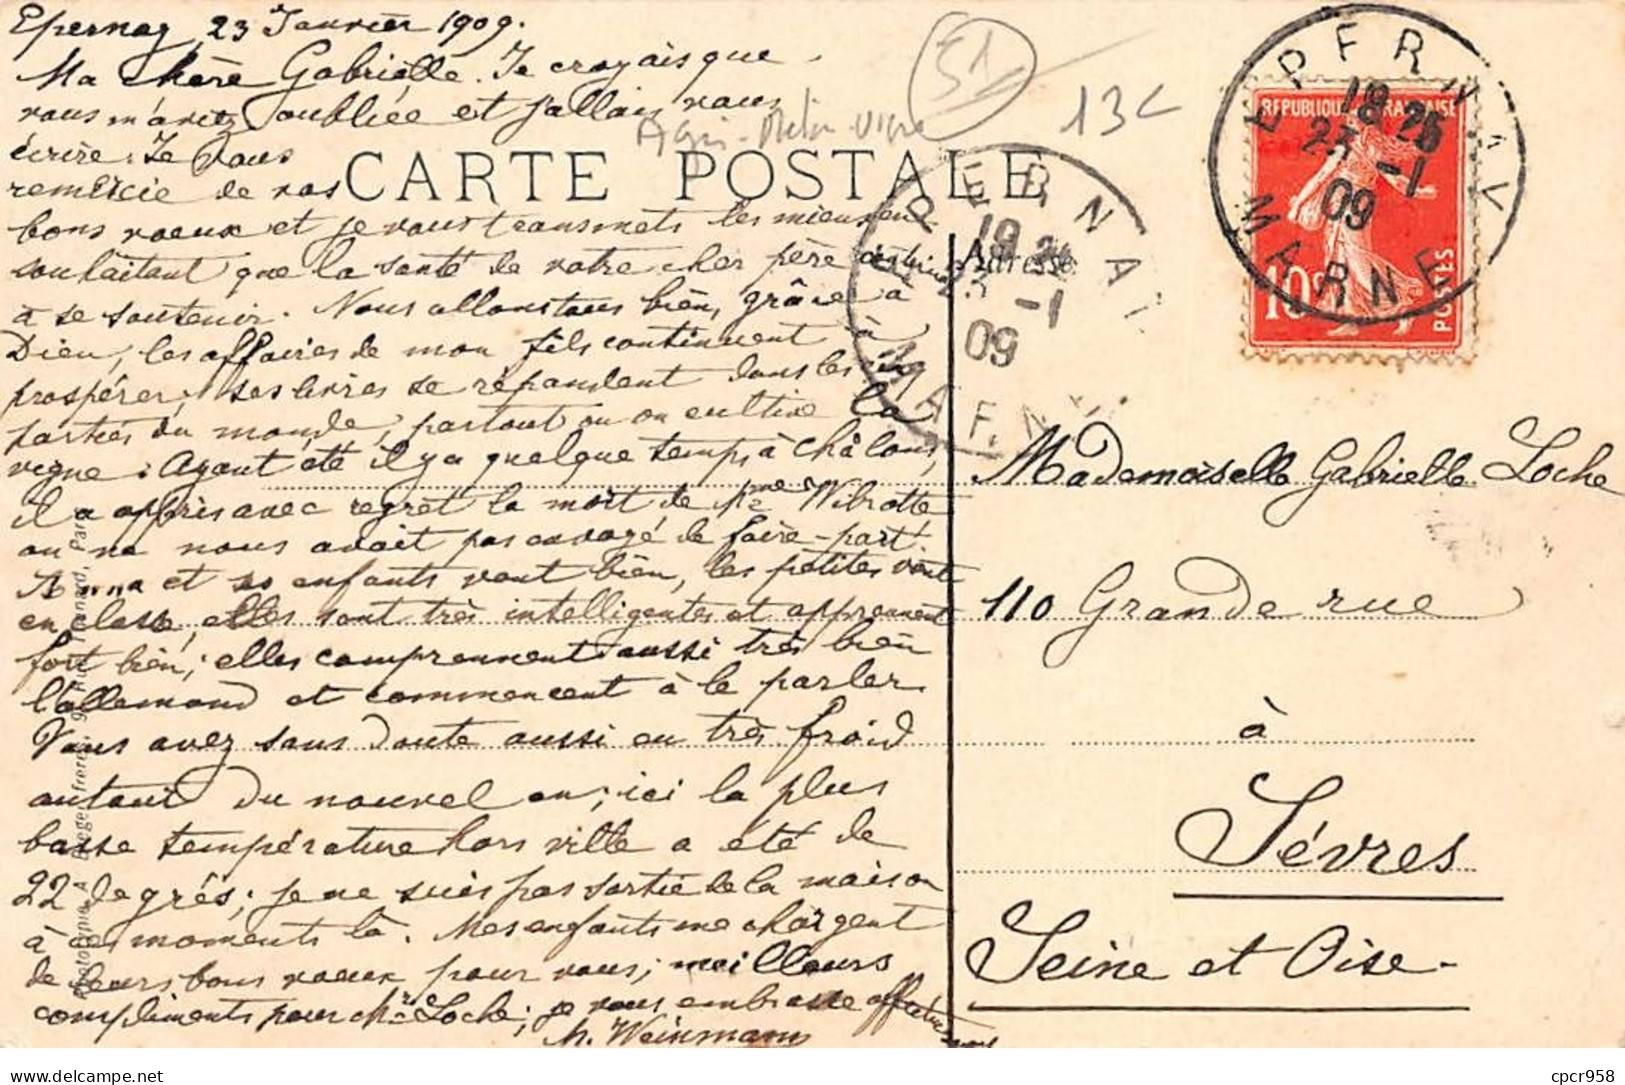 Epernay, 23 Janvier 1909.
Ma chère Gabrielle. Je croyais que
vous m'aviez oubliée et j'allais vous
écrire. Je vous
remercie de vos
bons voeux et je vous transmets les miens en
souhaitant que la santé de votre cher père continue
à se soutenir. Nous allons tous bien, grâce à
Dieu, les affaires de mon fils continuent à
prospérer, ses livres se répandent dans les cinq
parties du monde, partout où on cultive la
vigne. Ayant été il y a quelque temps à Châlons,
il a appris avec regret la mort de Wibrotte
on ne nous avait pas envoyé de faire-part.
Anna et ses enfants vont bien, les petites vont
en classe, elles sont très intelligentes et apprennent
fort bien; elles comprennent aussi très bien
l'allemand et commencent à le parler.
Vous avez sans doute aussi eu très froid
autour du nouvel an; ici la plus
basse température hors ville a été de
22 degrés; je ne suis pas sortie de la maison
à ces moments là. Mes enfants me chargent
de leurs bons voeux pour vous; meilleurs
compliments pour Mr Loche; je vous embrasse affectueusement
M. Weinmann
51
13c
CARTE POSTALE
Adresse
EPERNAY
MARNE
19
23 -1
09
EPERNAY
MARNE
18 25
23 -1
09
REPUBLIQUE FRANÇAISE
10c
POSTES
Mademoiselle Gabrielle Loche
110 Grande rue
à
Sèvres
Seine et Oise.
cpcr958